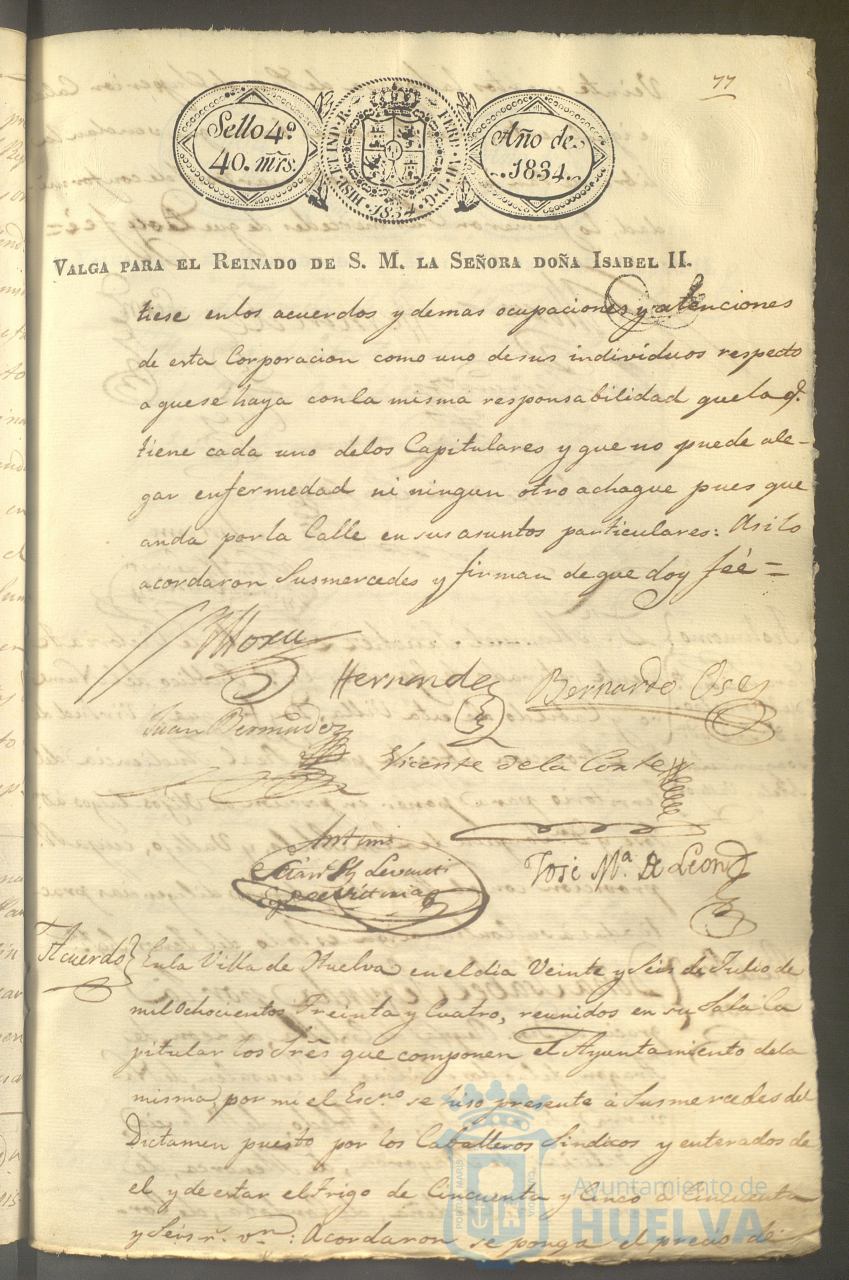 77
Sello 4º
40. mrs.
HISP. ET IND. R. FERD. VII. D. G.
1834
Año de
1834.
VALGA PARA EL REINADO DE S. M. LA SEÑORA DOÑA ISABEL II.
tiese enlos acuerdos y demas ocupaciones y atenciones
de esta Corporacion como uno desus individuos respecto
aquese haya conla misma responsabilidad quela q.
tiene cada uno delos Capitulares y que no puede ale-
gar enfermedad ni ningun otro achaque pues que
anda por la Calle en sus asuntos particulares: Asi lo
acordaron Susmercedes y firman de que doy feé =
Hernandez
Bernardo
Juan Bermudez
Vicente dela Corte
Antonio
José Mª. De Leon
Acuerdo
Enla Villa de Huelva en el dia Veinte y Seis de Julio de
mil Ochocientos Treinta y Cuatro, reunidos en su Sala Ca
pitular los Srês que componen el Ayuntamiento dela
misma por mi el Escno se hiso presente á Susmercedes del
Dictamen puesto por los Caballeros Sindicos y enterados de
el y de estar el Trigo de Cincuenta y Cinco á Cincuenta
y Seis r. vn: Acordaron se ponga el precio de
Ayuntamiento de
HUELVA